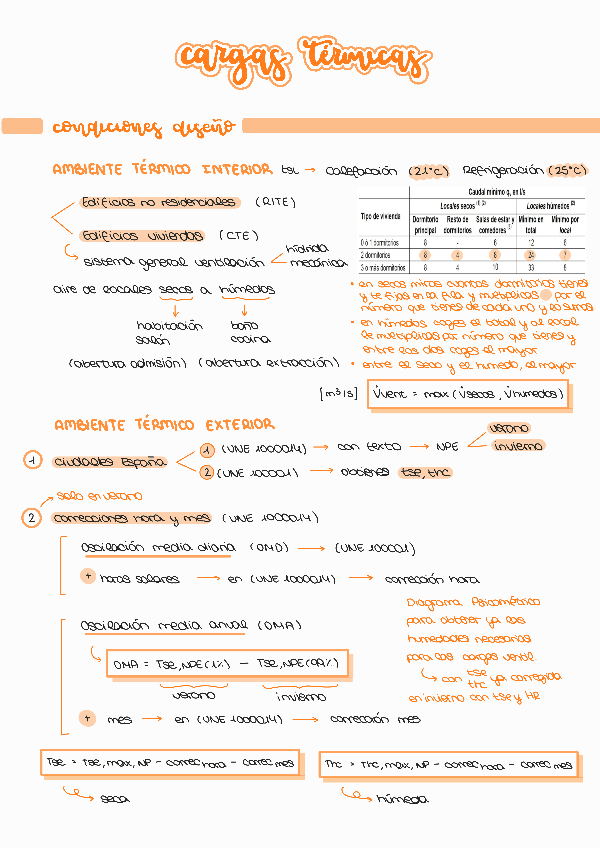 cargas térmicas
condiciones diseño
AMBIENTE TÉRMICO INTERIOR tsi → Calefacción (21°C) Refrigeración (25°C)
Edificios no residenciales (RITE)
Edificios viviendas (CTE)
sistema general ventilación
híbrida
mecánica
aire de locales secos a húmedos
habitación baño
salón cocina
(abertura admisión) (abertura extracción)
Caudal mínimo qv en l/s
Tipo de vivienda
Locales secos (1) (2)
Locales húmedos (2)
Dormitorio principal
Resto de dormitorios
Salas de estar y comedores (3)
Mínimo en total
Mínimo por local
0 ó 1 dormitorios 8 - 6 12 6
2 dormitorios 8 4 8 24 7
3 o más dormitorios 8 4 10 33 8
• en secos miras cuantos dormitorios tienes
y te fijas en la fila y multiplicas por el
número que tienes de cada uno y lo sumas
• en húmedos coges el total y al local
le multiplicas por número que tienes y
entre los dos coges el mayor
• entre el seco y el húmedo, el mayor
[m³/s] V̇vent = max (V̇secos, V̇humedos)
AMBIENTE TÉRMICO EXTERIOR
1 Ciudades España
1 (UNE 100014) → con texto → NPE
verano
invierno
2 (UNE 100001) → obtienes tse, thc
solo en verano
2 correcciones hora y mes (UNE 100014)
Oscilación media diaria (OMD) → (UNE 100001)
+ horas solares → en (UNE 100014) → corrección hora
Oscilación media anual (OMA)
OMA = Tse,NPE(1%) - Tse,NPE(99%)
verano invierno
+ mes → en (UNE 100014) → corrección mes
Diagrama Psicométrico
para obtener ya las
humedades necesarias
para las cargas ventil.
con tse thc ya corregida
en invierno con tse y HR
Tse = Tse,max,NP - correc hora - correc mes
seca
Thc = Thc,max,NP - correc hora - correc mes
húmeda